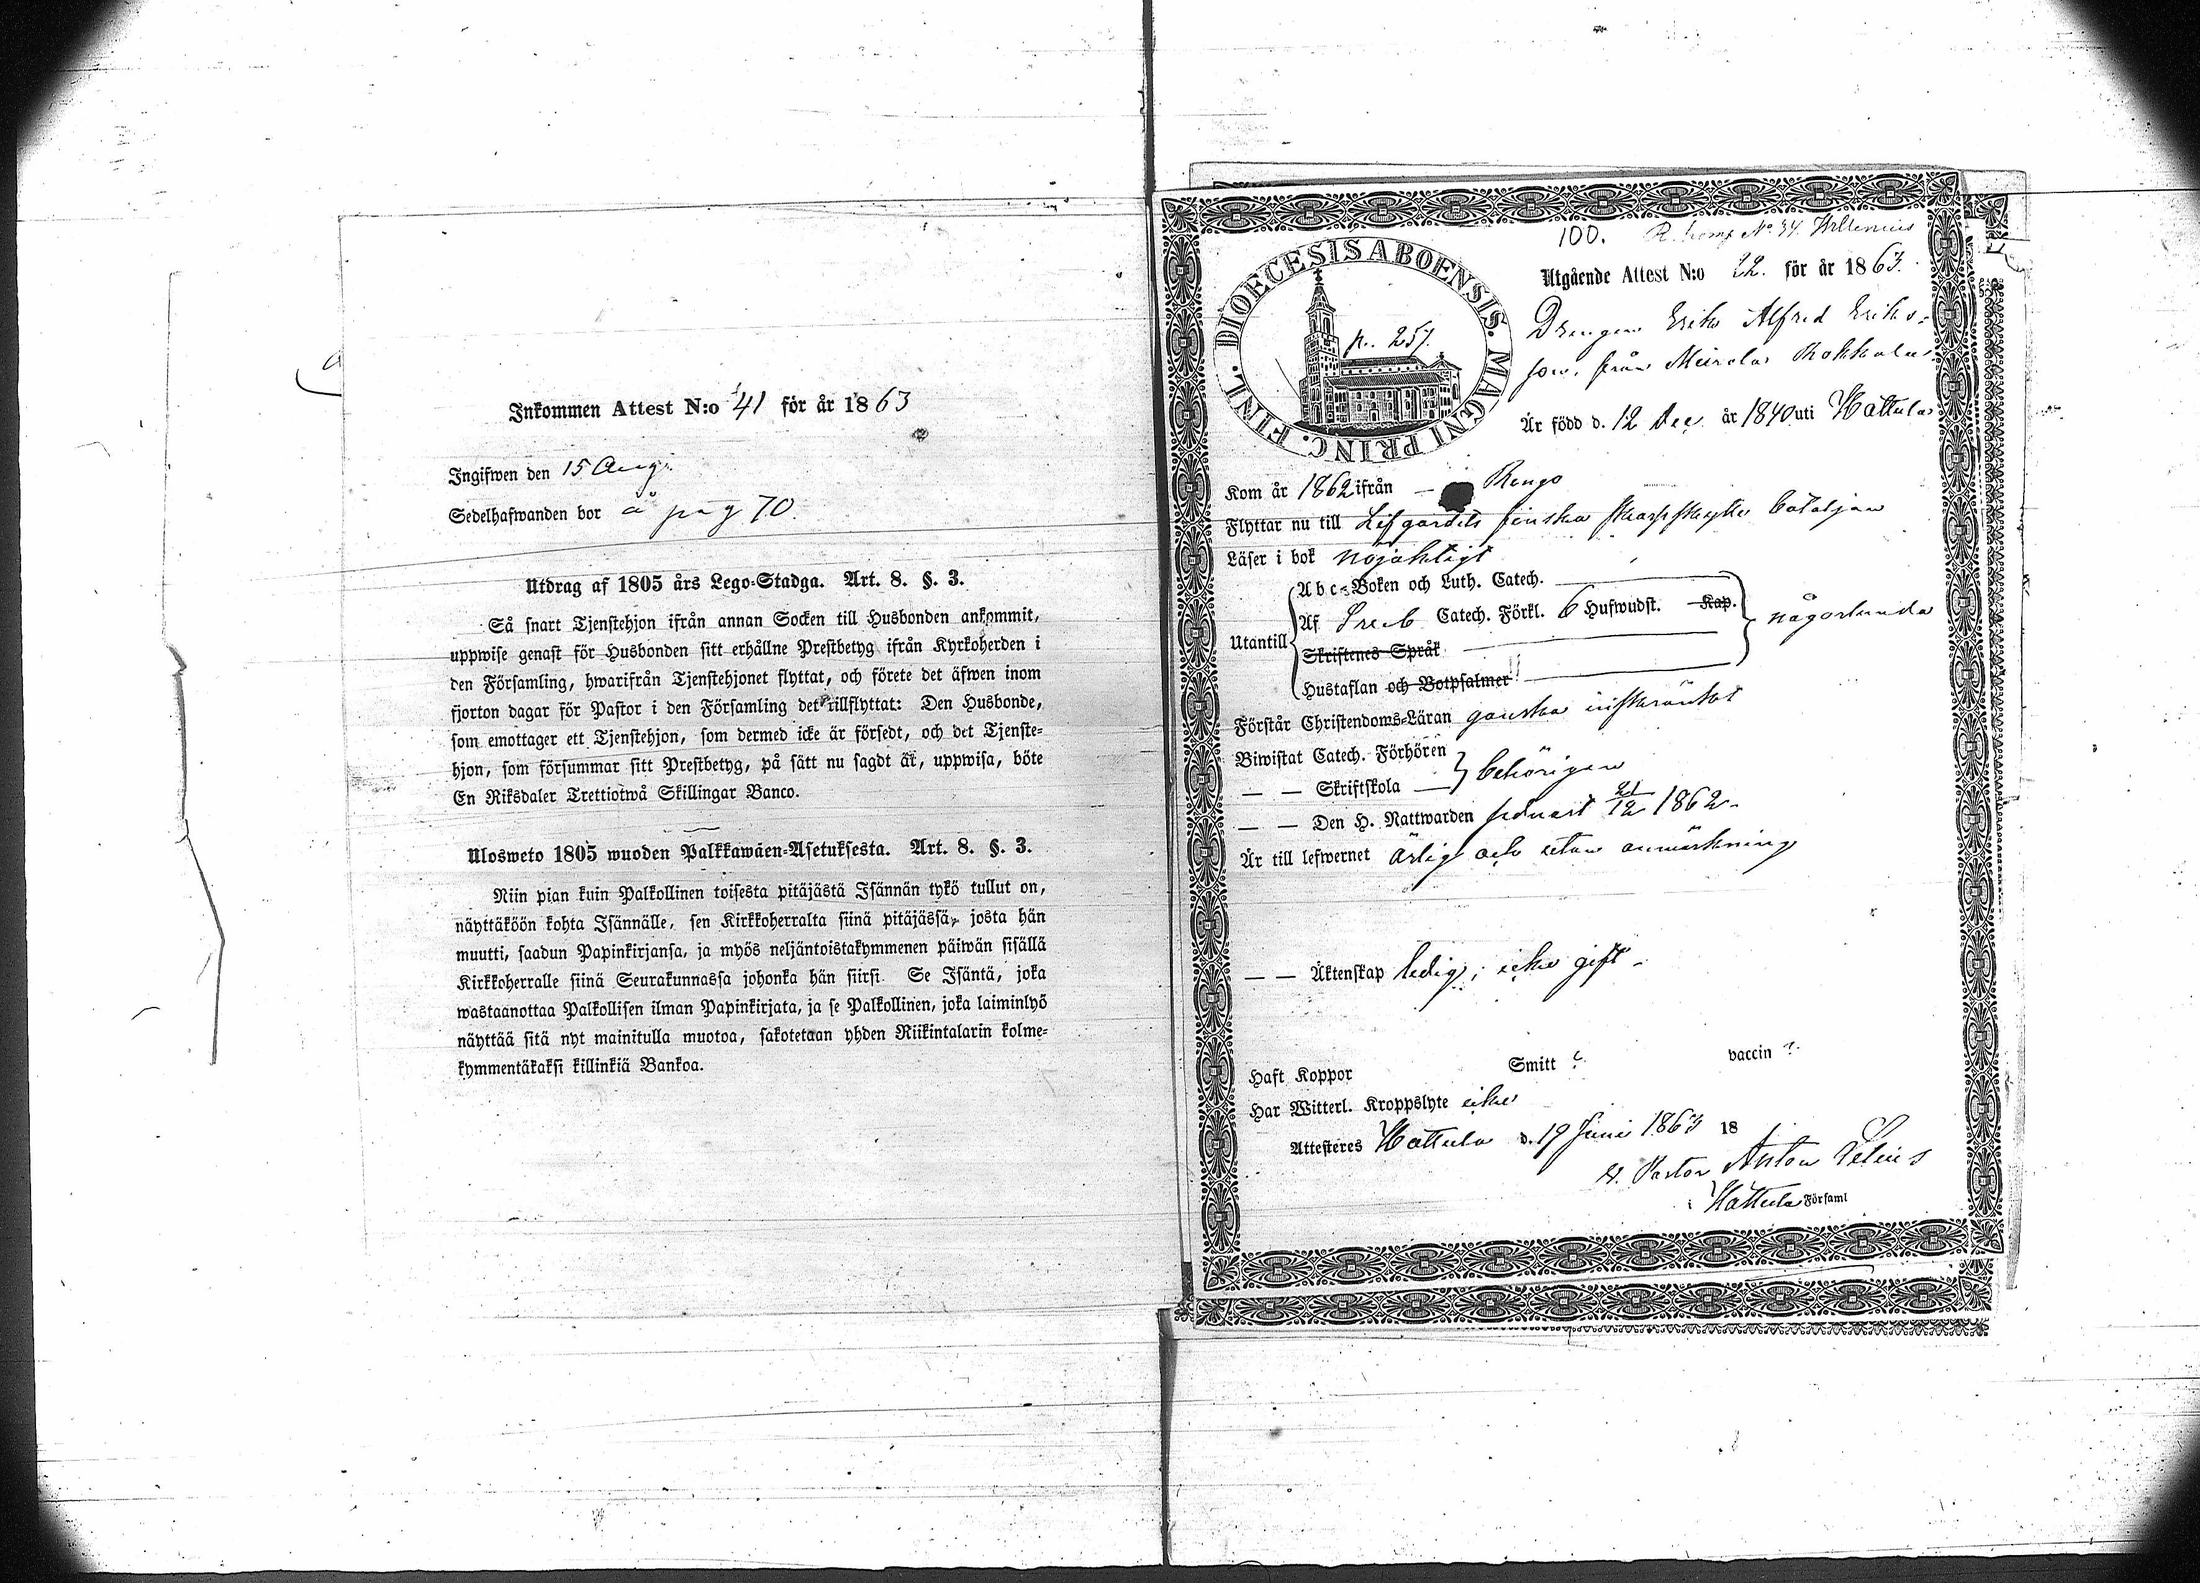 Inkommen Attest N:o 41 för år 1863
Ingifwen den 15 Aug.
Sedelhafwanden bor å pag 70.
Utdrag af 1805 års Lego-Stadga. Art. 8. §. 3.
Så snart Tjenstehjon ifrån annan Socken till Husbonden ankommit,
uppwise genast för Husbonden sitt erhållne Prestbetyg ifrån Kyrkoherden i
den Församling, hwarifrån Tjenstehjonet flyttat, och förete det äfwen inom
fjorton dagar för Pastor i den Församling det tillflyttat: Den Husbonde,
som emottager ett Tjenstehjon, som dermed icke är försedt, och det Tjenste-
hjon, som försummar sitt Prestbetyg, på sätt nu sagdt är, uppwisa, böte
En Riksdaler Trettiotwå Skillingar Banco.
Ulosweto 1805 wuoden Palkkawäen-Asetuksesta. Art. 8. §. 3.
Niin pian kuin Palkollinen toisesta pitäjästä Isännän tykö tullut on,
näyttäköön kohta Isännälle, sen Kirkkoherralta siinä pitäjässä, josta hän
muutti, saadun Papinkirjansa, ja myös neljäntoistakymmenen päiwän sisällä
Kirkkoherralle siinä Seurakunnassa johonka hän siirsi. Se Isäntä, joka
wastaanottaa Palkollisen ilman Papinkirjata, ja se Palkollinen, joka laiminlyö
näyttää sitä nyt mainitulla muotoa, sakotetaan yhden Riikintalarin kolme-
kymmentäkaksi killinkiä Bankoa.
100. R. komp No 34.
DIOECESIS ABOENSIS. MAGNI PRINC. FINL.
p. 257.
Utgående Attest N:o 22. för år 1863.
Drengen Erik Alfred Eriks-
son, från Mierola
Är född d. 12 Dec. år 1840 uti Hattula
Kom år 1862 ifrån — Rengo
Flyttar nu till Lifgardets finska skarpskytte bataljon
Läser i bok nöjaktigt
Utantill
A b c-Boken och Luth. Catech.
Af Sveb. Catech. Förkl. 6 Hufwudst. Kap.
någorlunda
Skriftenes Språk
Hustaflan och Botpsalmer
Förstår Christendoms-Läran ganska inskränkt
Biwistat Catech. Förhören
behörigen
— — Skriftskola
— — Den H. Nattwarden senast 21/12 1862
Är till lefwernet ärlig och utan anmärkning
— — Äktenskap ledig; icke gift
Haft Koppor Smitt ? vaccin ?
Har Witterl. Kroppslyte icke
Attesteres Hattula d. 19 Juni 1863 18
v. Pastor Anton
i Hattula Församl